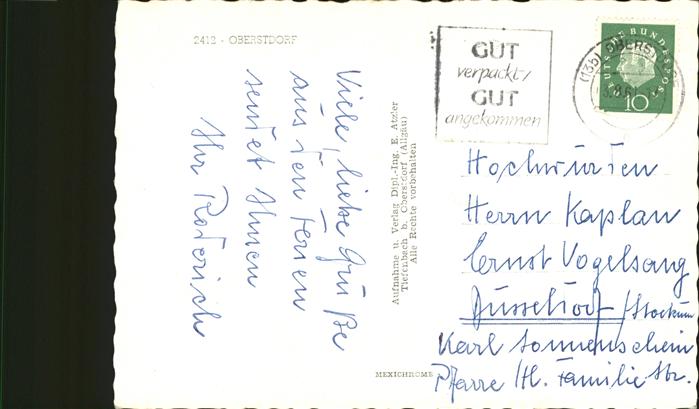 2412 - OBERSTDORF
Viele, liebe Grüße
aus den Ferien
sendet Ihnen
Ihr Roderich
Aufnahme u. Verlag Dipl.-Ing. E. Atzler
Tiefenbach b. Oberstdorf (Allgäu)
Alle Rechte vorbehalten
MEXICHROME
GUT
verpackt/
GUT
angekommen
DEUTSCHE BUNDESPOST
10
(13b) OBERSTDORF
Hochwürden
Herrn Kaplan
Ernst Vogelsang
Düsseldorf/Stockum
Karl Sonnenschein
Pfarre/Hl. Familie Str.